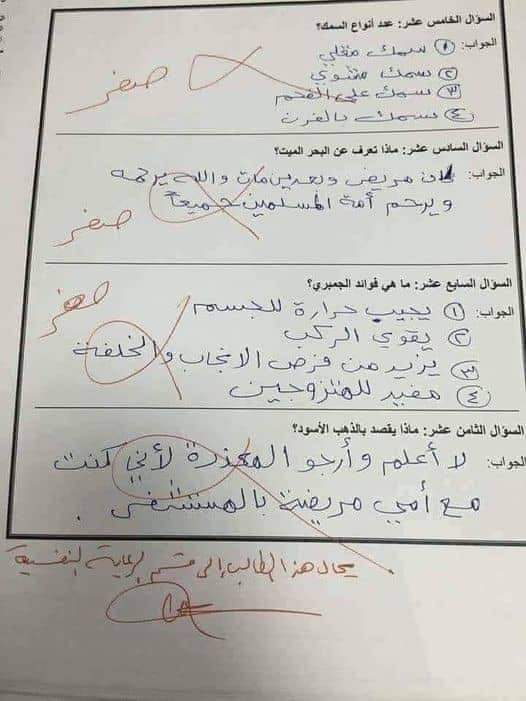 السؤال الخامس عشر: عدد أنواع السمك؟
الجواب: ① سمك مقلي
② سمك مشوي
③ سمك على الفحم
④ سمك بالفرن
صفر
السؤال السادس عشر: ماذا تعرف عن البحر الميت؟
الجواب: كان مريض وبعدين مات والله يرحمه
ويرحم أمة المسلمين جميعاً
صفر
السؤال السابع عشر: ما هي فوائد الجمبري؟
الجواب: ① يجيب حرارة للجسم
② يقوي الركب
③ يزيد من فرص الانجاب والخلفة
④ مفيد للمتزوجين
صفر
السؤال الثامن عشر: ماذا يقصد بالذهب الأسود؟
الجواب: لا أعلم وأرجو المعذرة لأني كنت
مع أمي مريضة بالمستشفى.
يحال هذا الطالب إلى قسم الرعاية النفسية